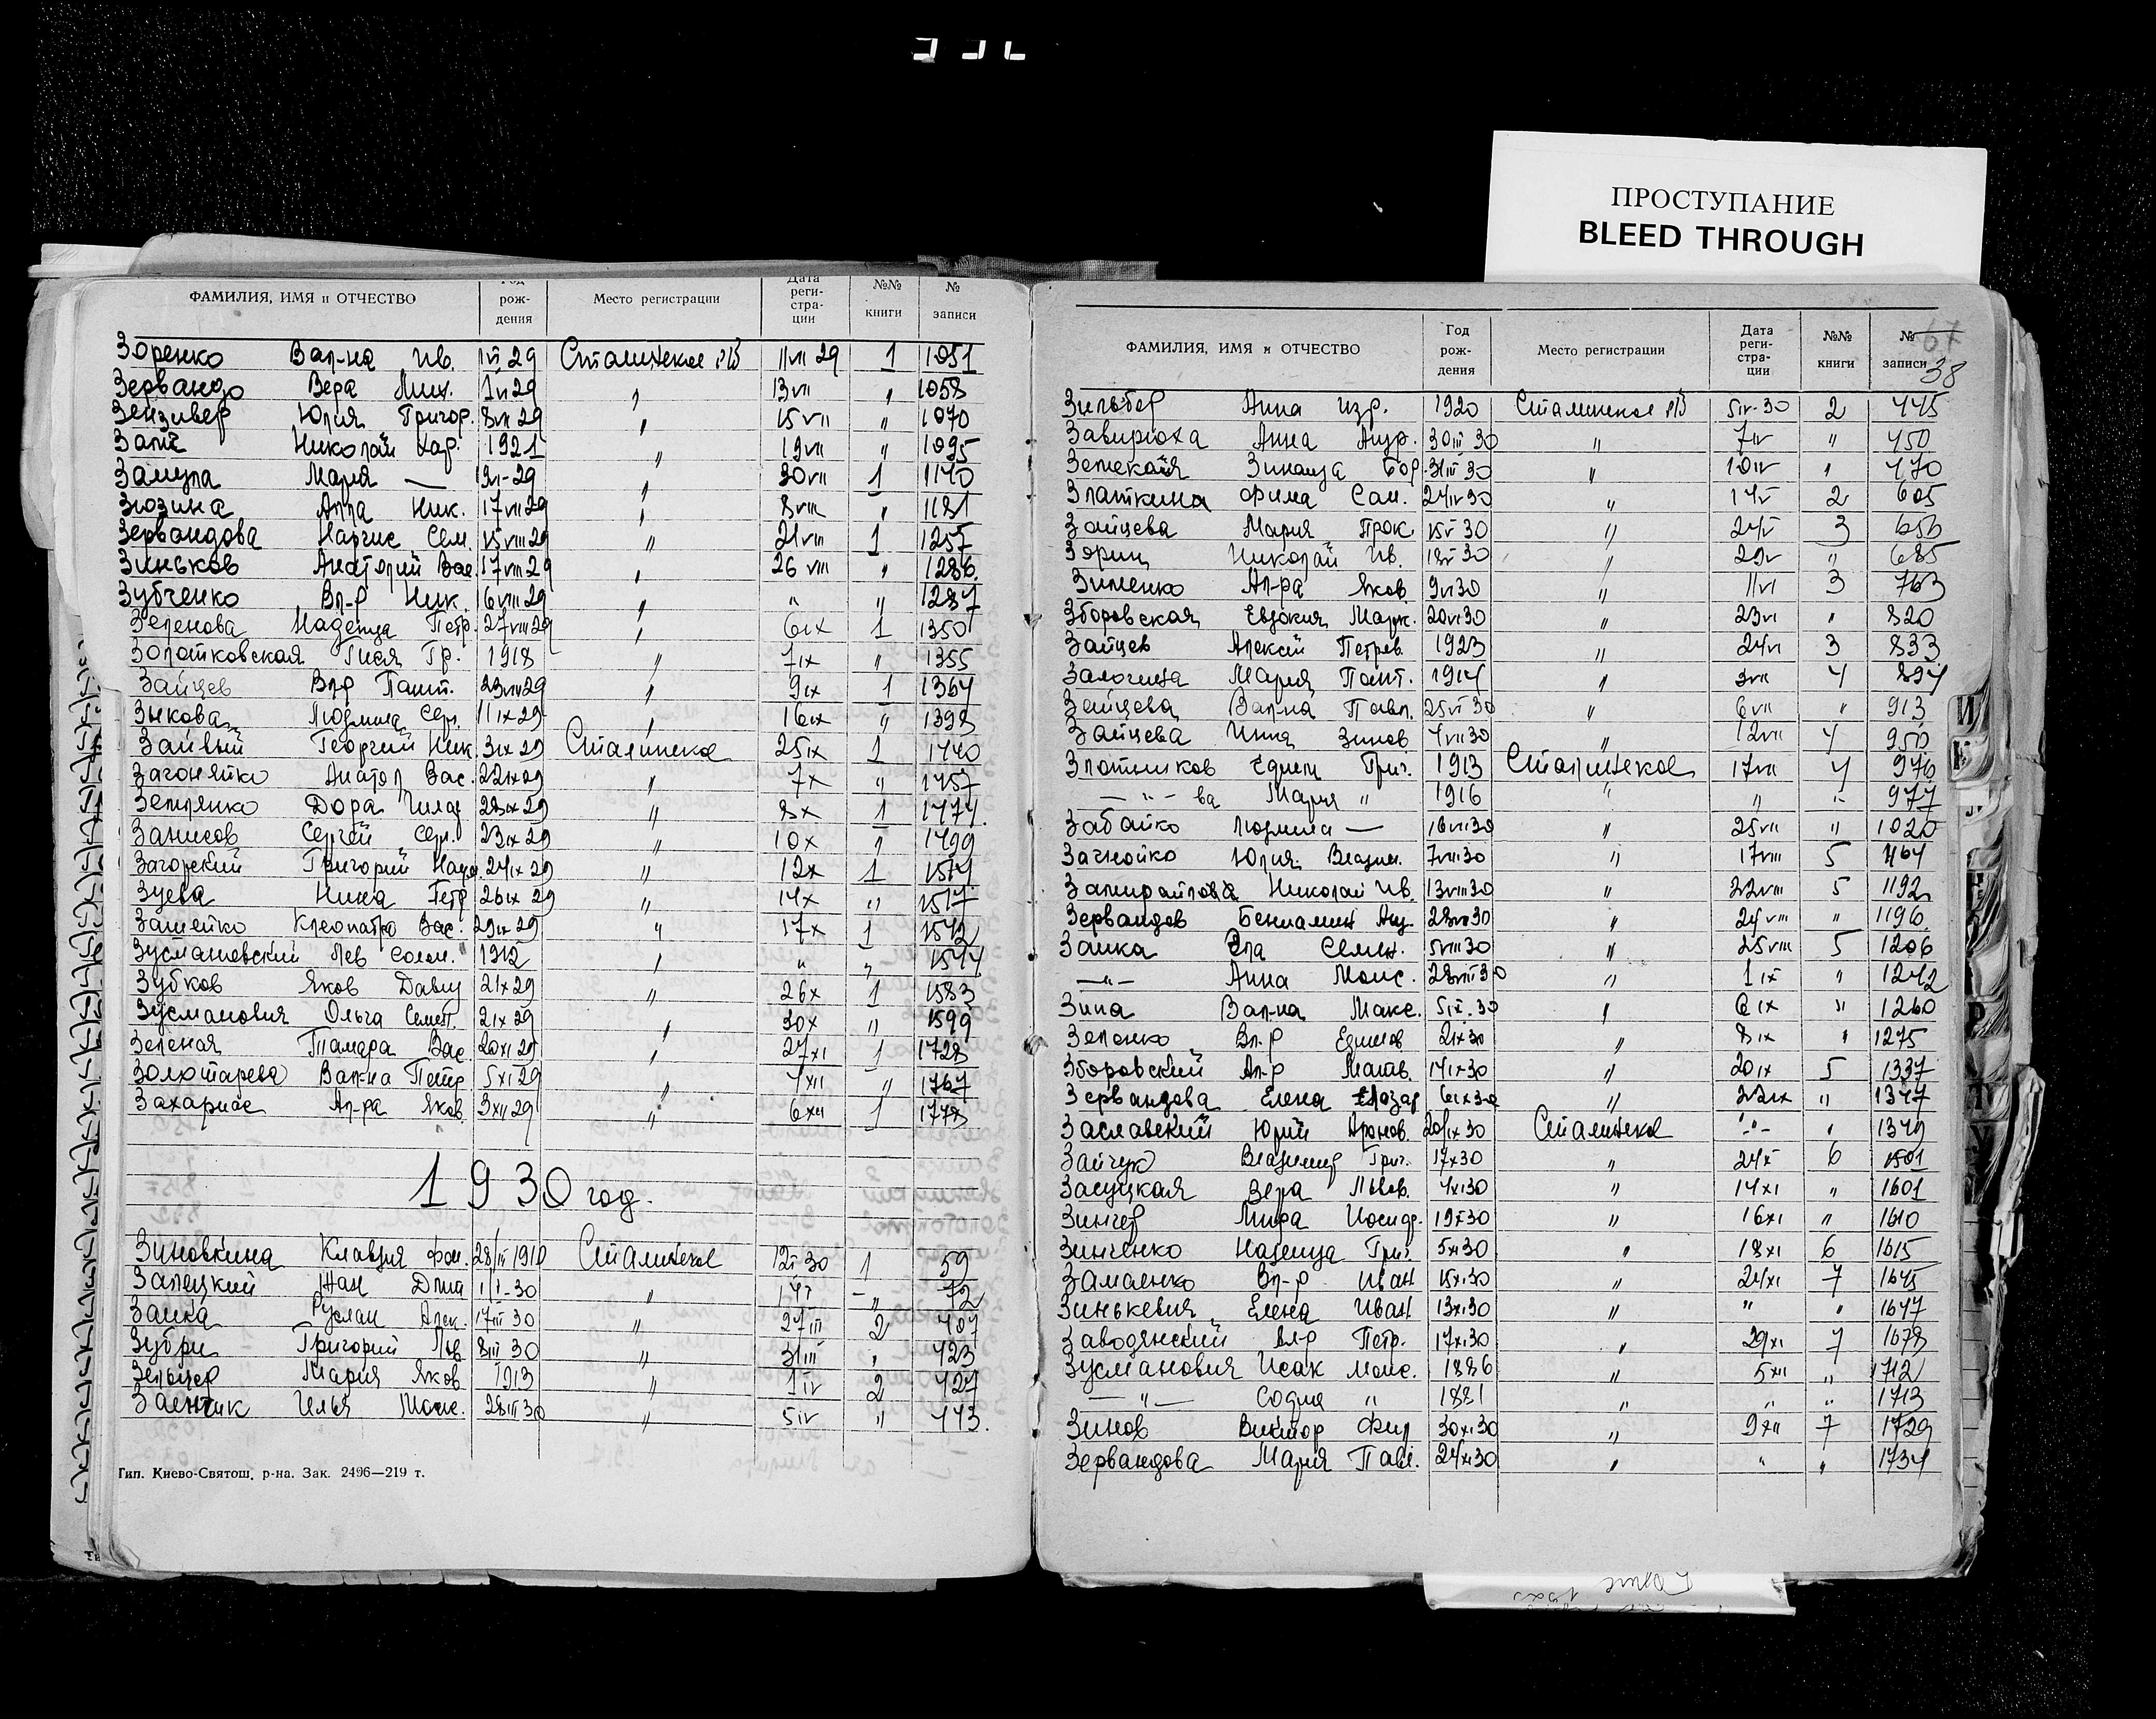 ПРОСТУПАНИЕ
BLEED THROUGH
ФАМИЛИЯ, ИМЯ и ОТЧЕСТВО Год рождения Место регистрации Дата регистрации №№ книги № записи
Зоренко Вал-на Ив. 1 VI 29 Сталинское р/б 11 VII 29 1 1051
Зервандо Вера Мих. 13 VII " 1058
Зензивер Юлия Григор. 8 VII 29 " 15 VII " 1070
Николай 1921 " 19 VII " 1095
Мария — " 30 VII 1 1140
Зюзина Алла Ник. 17 VII 29 " 8 VIII " 1181
Зервандова Наргис Сем. 15 VIII 29 " 21 VIII 1 1257
Зиньков Анатолий Вас. 17 VIII 29 " 26 VIII " 1286
Зубченко Вл-р Ник. 6 VIII 29 " " " 1287
Зеленова Надежда Петр. 27 VIII 29 " 6 IX 1 1350
Золотковская Гися Гр. 1918 " 7 IX " 1355
Зайцев Влр Пант. 23 VIII 29 " 9 IX 1 1364
Зыкова Людмила Серг. 11 IX 29 " 16 IX " 1398
Георгий Ник. 3 IX 29 Сталинское 25 IX 1 1440
Загоняйко Анатол Вас. 22 IX 29 " 7 X " 1457
Дора 28 IX 29 " 8 X 1 1474
Занисов Сергей Серг. 23 IX 29 " 10 X " 1499
Загорский Григорий 24 IX 29 " 12 X 1
Зуева Нина Петр 26 IX 29 " 14 X " 1517
Клеопатра Вас. 29 IX 29 " 17 X 1 1542
Зусмановский Лев Солом. 1912 " " " 1544
Зубков Яков Давид 21 X 29 " 26 X 1 1583
Зусманович Ольга Семен. 21 X 29 " 30 X " 1599
Зеленая Тамара Вас 20 XI 29 " 27 XI 1 1728
Золотарева Вал-на Петр 5 XI 29 " 4 XII " 1767
Захариас Ал-ра Яков. 3 XII 29 " 6 XII 1 1778
1930 год.
Зиновкина Клавдия 28/III 1910 Сталинское 12 I 30 1 59
Залецкий Жан Дми 1/I-30 " " 72
Заика Руслан Алек. 17 III 30 " 27 III 2 407
Зубри Григорий Льв 8 III 30 " 31 III " 423
Зельцер Мария Яков 1913 " 1 IV 2 427
Заенчик Илья Моис. 28 III 30 " 5 IV " 443.
Тип. Киево-Святош. р-на. Зак. 2496—219 т.
67
38
ФАМИЛИЯ, ИМЯ и ОТЧЕСТВО Год рождения Место регистрации Дата регистрации №№ книги № записи
Зильбер Анна Изр. 1920 Сталинское р/б 5 IV-30 2 445
Завирюха Анна Андр. 30 III 30 " 7 IV " 450
Земская Зинаида Бор. 31 III 30 " 10 IV " 470
Златкина Фима Сам. 24 IV 30 " 14 V 2 605
Зайцева Мария Прок. 15 V 30 " 24 V 3 656
Зорин Николай Ив. 18 V 30 " 29 V " 685
Зименко Ал-ра Яков. 9 VI 30 " 11 VI 3 763
Зборовская Евдокия Марк. 20 VI 30 " 23 VI " 820
Зайцев Алексей Петров. 1923 " 24 VI 3 833
Залогина Мария Пант. 1914 " 3 VII 4 894
Зайцева Вал-на Павл. 25 VI 30 " 6 VII " 913
Зайцева Инна Зинов 4 VII 30 " 12 VII 4 950
Злотников Едиел Григ. 1913 Сталинское 17 VII 4 976
— " — ва Мария " 1916 " " " 977
Забайко Людмила — 16 VII 30 " 25 VII " 1020
Загнойко Юлия Владим. 7 VIII 30 " 17 VIII 5 1164
Николай Ив. 13 VIII 30 " 22 VIII 5 1192
Зервандов Бениамин 28 VII 30 " 24 VIII " 1196
Заика Ела Семен. 5 VIII 30 " 25 VIII 5 1206
— " — Анна Моис. 28 VIII 30 " 1 IX " 1242
Зина Вал-на Макс. 5 IX-30 " 6 IX " 1260
Зеленко Вл-р Ефимов 2 IX 30 " 8 IX " 1275
Зборовский Ал-р Матв. 14 IX 30 " 20 IX 5 1337
Зервандова Елена Елазар 6 IX 30 " 22 IX " 1347
Заславский Юрий Аронов. 20 IX 30 Сталинское " " 1349
Зайчук Владимир Григ. 17 X 30 " 24 X 6 1501
Засуцкая Вера Львов. 4 XI 30 " 14 XI " 1601
Зингер Мира Иосиф. 19 X 30 " 16 XI " 1610
Зинченко Надежда Григ. 5 XI 30 " 18 XI 6 1615
Замаенко Вл-р Иван 15 XI 30 " 24 XI 7 1645
Зинькевич Елена Иван. 13 XI 30 " " " 1647
Заводянский Вл-р Петр. 17 XI 30 " 29 XI 7 1678
Зусманович Исак Моис. 1886 " 5 XII " 1712
— " — София " 1881 " " " 1713
Зинов Виктор Фил 30 XI 30 " 9 XII 7 1729
Зервандова Мария Павл. 24 XI 30 " " " 1734